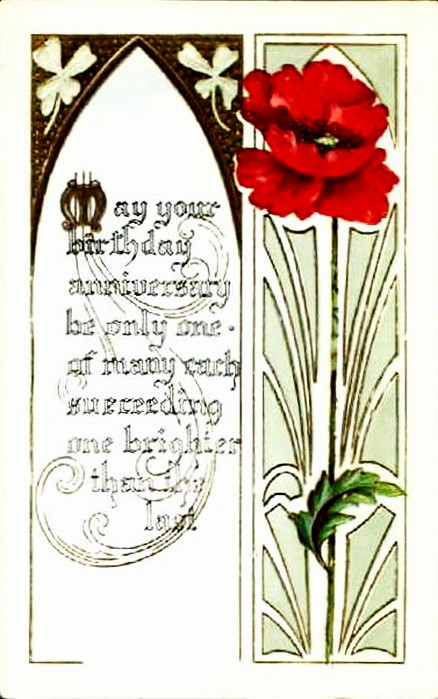 May your
birthday
anniversary
be only one
of many each
succeeding
one brighter
than the
last